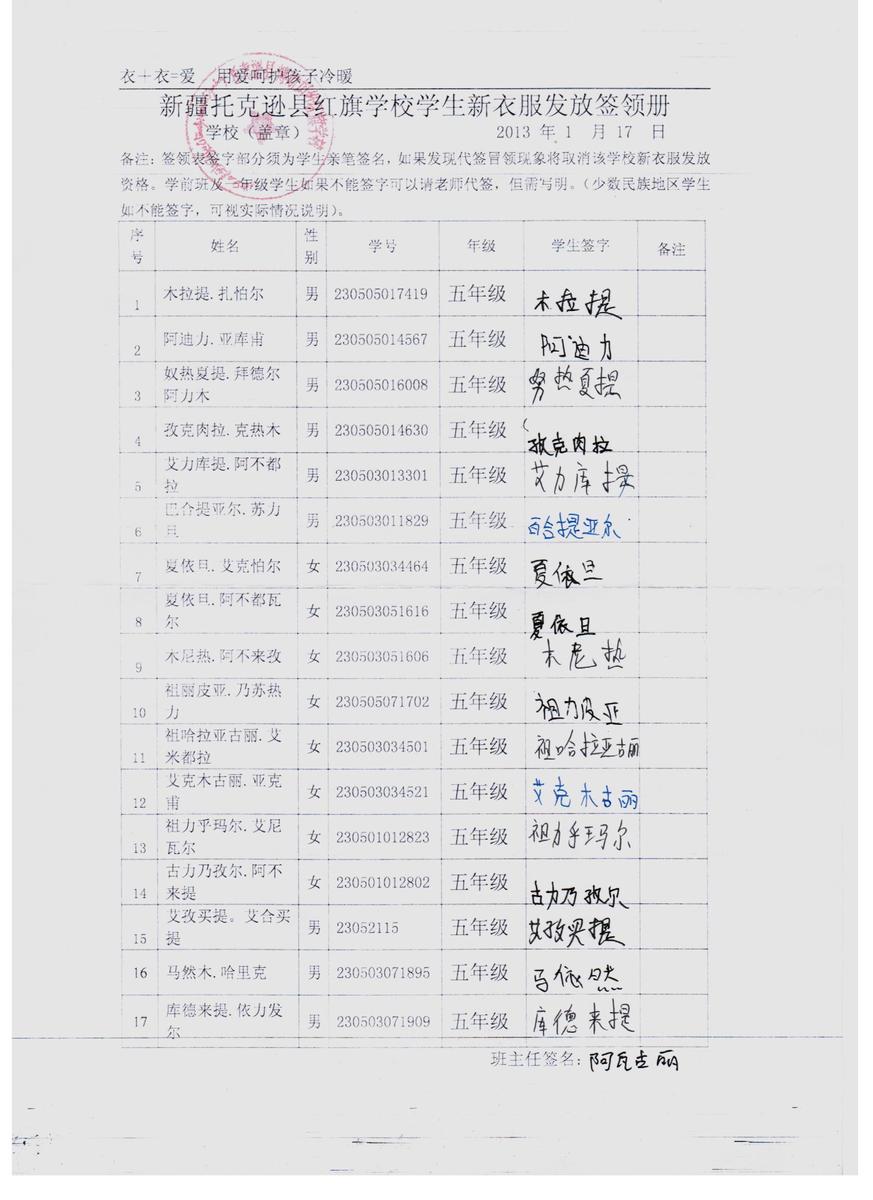 衣+衣=爱 用爱呵护孩子冷暖
新疆托克逊县红旗学校学生新衣服发放签领册
学校（盖章） 2013 年 1 月 17 日
备注：签领表签字部分须为学生亲笔签名，如果发现代签冒领现象将取消该学校新衣服发放
资格。学前班及一年级学生如果不能签字可以请老师代签，但需写明。（少数民族地区学生
如不能签字，可视实际情况说明）。
序号 姓名 性别 学号 年级 学生签字 备注
1 木拉提.扎怕尔 男 230505017419 五年级 木拉提
2 阿迪力.亚库甫 男 230505014567 五年级 阿迪力
3 奴热夏提.拜德尔阿力木 男 230505016008 五年级 努热夏提
4 孜克肉拉.克热木 男 230505014630 五年级 孜克肉拉
5 艾力库提.阿不都拉 男 230503013301 五年级 艾力库提
6 巴合提亚尔.苏力旦 男 230503011829 五年级 百合提亚尔
7 夏依旦.艾克怕尔 女 230503034464 五年级 夏依旦
8 夏依旦.阿不都瓦尔 女 230503051616 五年级 夏依旦
9 木尼热.阿不来孜 女 230503051606 五年级 木尼热
10 祖丽皮亚.乃苏热力 女 230505071702 五年级 祖力皮亚
11 祖哈拉亚古丽.艾米都拉 女 230503034501 五年级 祖哈拉亚古丽
12 艾克木古丽.亚克甫 女 230503034521 五年级 艾克木古丽
13 祖力乎玛尔.艾尼瓦尔 女 230501012823 五年级 祖力乎玛尔
14 古力乃孜尔.阿不来提 女 230501012802 五年级 古力乃孜尔
15 艾孜买提。艾合买提 男 23052115 五年级 艾孜买提
16 马然木.哈里克 男 230503071895 五年级
17 库德来提.依力发尔 男 230503071909 五年级 库德来提
班主任签名：阿瓦古丽